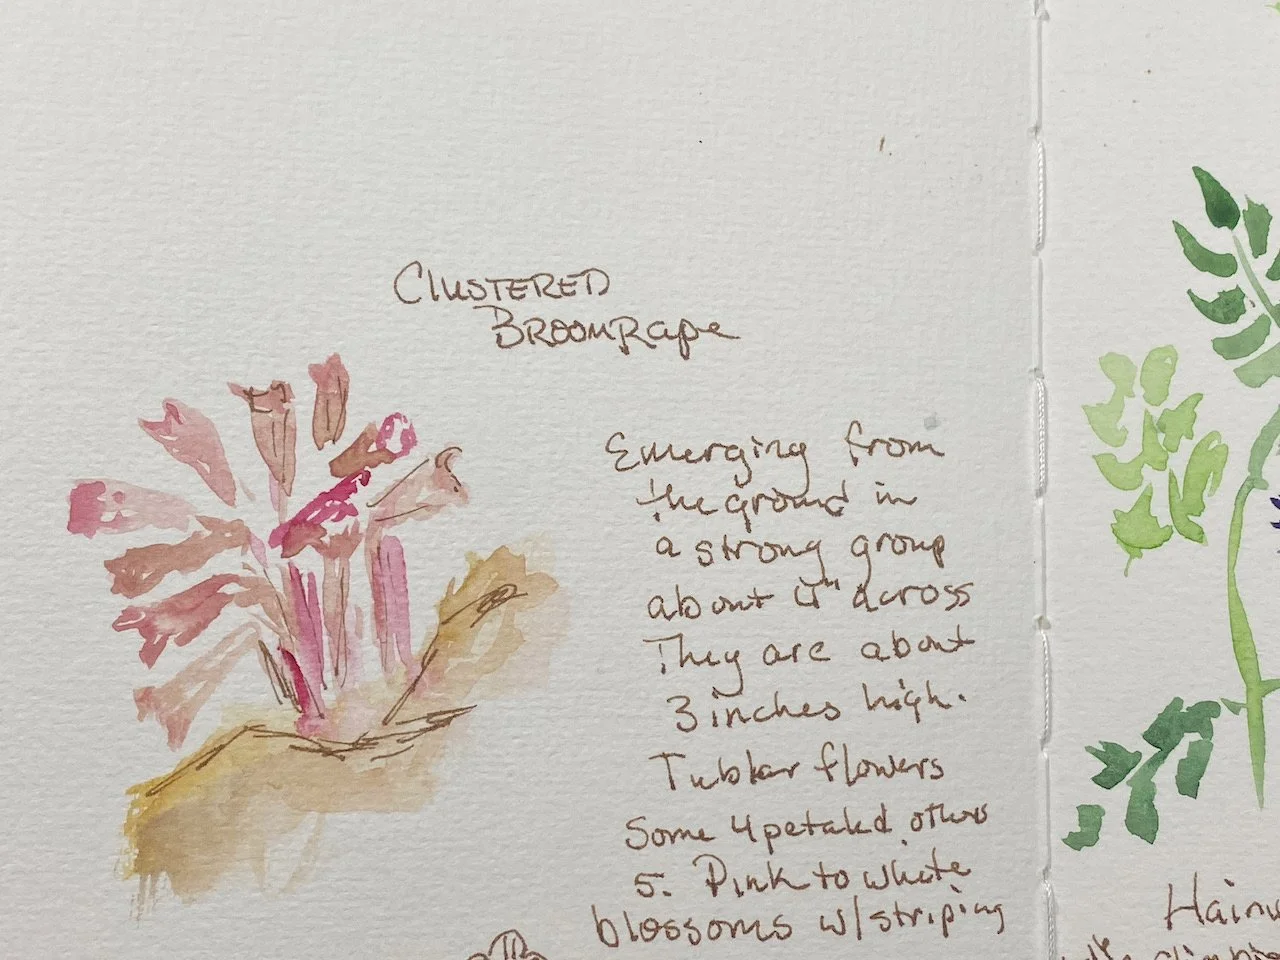 Clustered
Broomrape
Emerging from
the ground in
a strong group
about 4" across
They are about
3 inches high.
Tublar flowers
Some 4 petaled others
5. Pink to white
blossoms w/striping